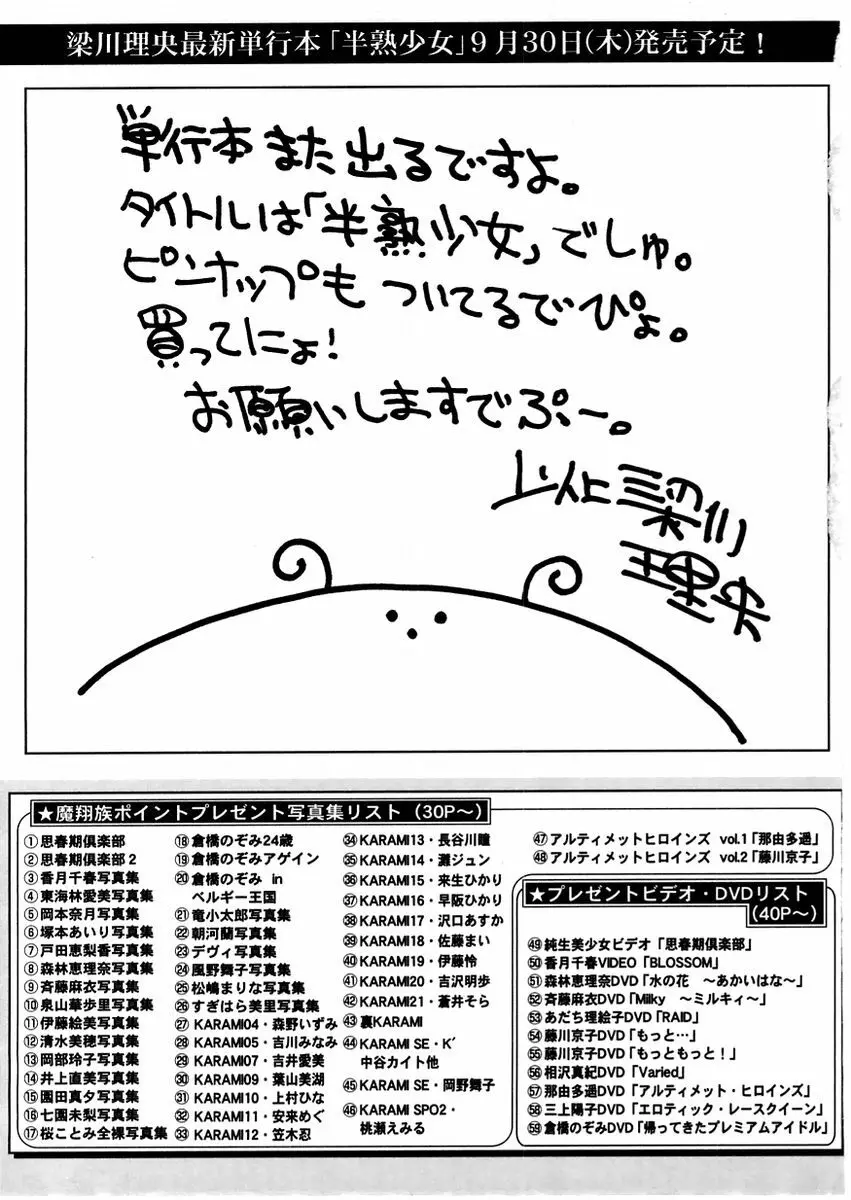 梁川理央最新単行本「半熟少女」9月30日(木)発売予定!
単行本また出るですよ。
タイトルは「半熟少女」でしゅ。
ピンナップもついてるでぴょ。
買ってにょ!
お願いしますでぷー。
以上 梁川
理央
★魔翔族ポイントプレゼント写真集リスト(30P〜)
①思春期倶楽部
②思春期倶楽部2
③香月千春写真集
④東海林愛美写真集
⑤岡本奈月写真集
⑥塚本あいり写真集
⑦戸田恵梨香写真集
⑧森林恵理奈写真集
⑨斉藤麻衣写真集
⑩泉山華歩里写真集
⑪伊藤絵美写真集
⑫清水美穂写真集
⑬岡部玲子写真集
⑭井上直美写真集
⑮園田真夕写真集
⑯七園未梨写真集
⑰桜ことみ全裸写真集
⑱倉橋のぞみ24歳
⑲倉橋のぞみアゲイン
⑳倉橋のぞみ in
ベルギー王国
㉑竜小太郎写真集
㉒朝河蘭写真集
㉓デヴィ写真集
㉔風野舞子写真集
㉕松嶋まりな写真集
㉖すぎはら美里写真集
㉗KARAMI04・森野いずみ
㉘KARAMI05・吉川みなみ
㉙KARAMI07・吉井愛美
㉚KARAMI09・葉山美湖
㉛KARAMI10・上村ひな
㉜KARAMI11・安来めぐ
㉝KARAMI12・笠木忍
㉞KARAMI13・長谷川瞳
㉟KARAMI14・灘ジュン
㊱KARAMI15・来生ひかり
㊲KARAMI16・早阪ひかり
㊳KARAMI17・沢口あすか
㊴KARAMI18・佐藤まい
㊵KARAMI19・伊藤怜
㊶KARAMI20・吉沢明歩
㊷KARAMI21・蒼井そら
㊸裏KARAMI
㊹KARAMI SE・K'
中谷カイト他
㊺KARAMI SE・岡野舞子
㊻KARAMI SPO2・
桃瀬えみる
㊼アルティメットヒロインズ vol.1「那由多遥」
㊽アルティメットヒロインズ vol.2「藤川京子」
★プレゼントビデオ・DVDリスト
(40P〜)
㊾純生美少女ビデオ「思春期倶楽部」
㊿香月千春VIDEO「BLOSSOM」
51森林恵理奈DVD「水の花 〜あかいはな〜」
52斉藤麻衣DVD「Milky 〜ミルキィ〜」
53あだち理絵子DVD「RAID」
54藤川京子DVD「もっと…」
55藤川京子DVD「もっともっと!」
56相沢真紀DVD「Varied」
57那由多遥DVD「アルティメット・ヒロインズ」
58三上陽子DVD「エロティック・レースクイーン」
59倉橋のぞみDVD「帰ってきたプレミアムアイドル」